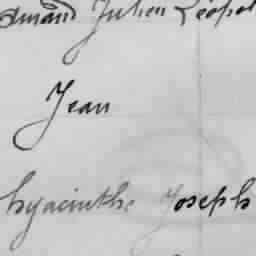 Armand Julien Léopol
Jean
hyacinthe Joseph